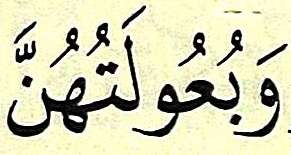 وَبُعُولَتُهُنَّ